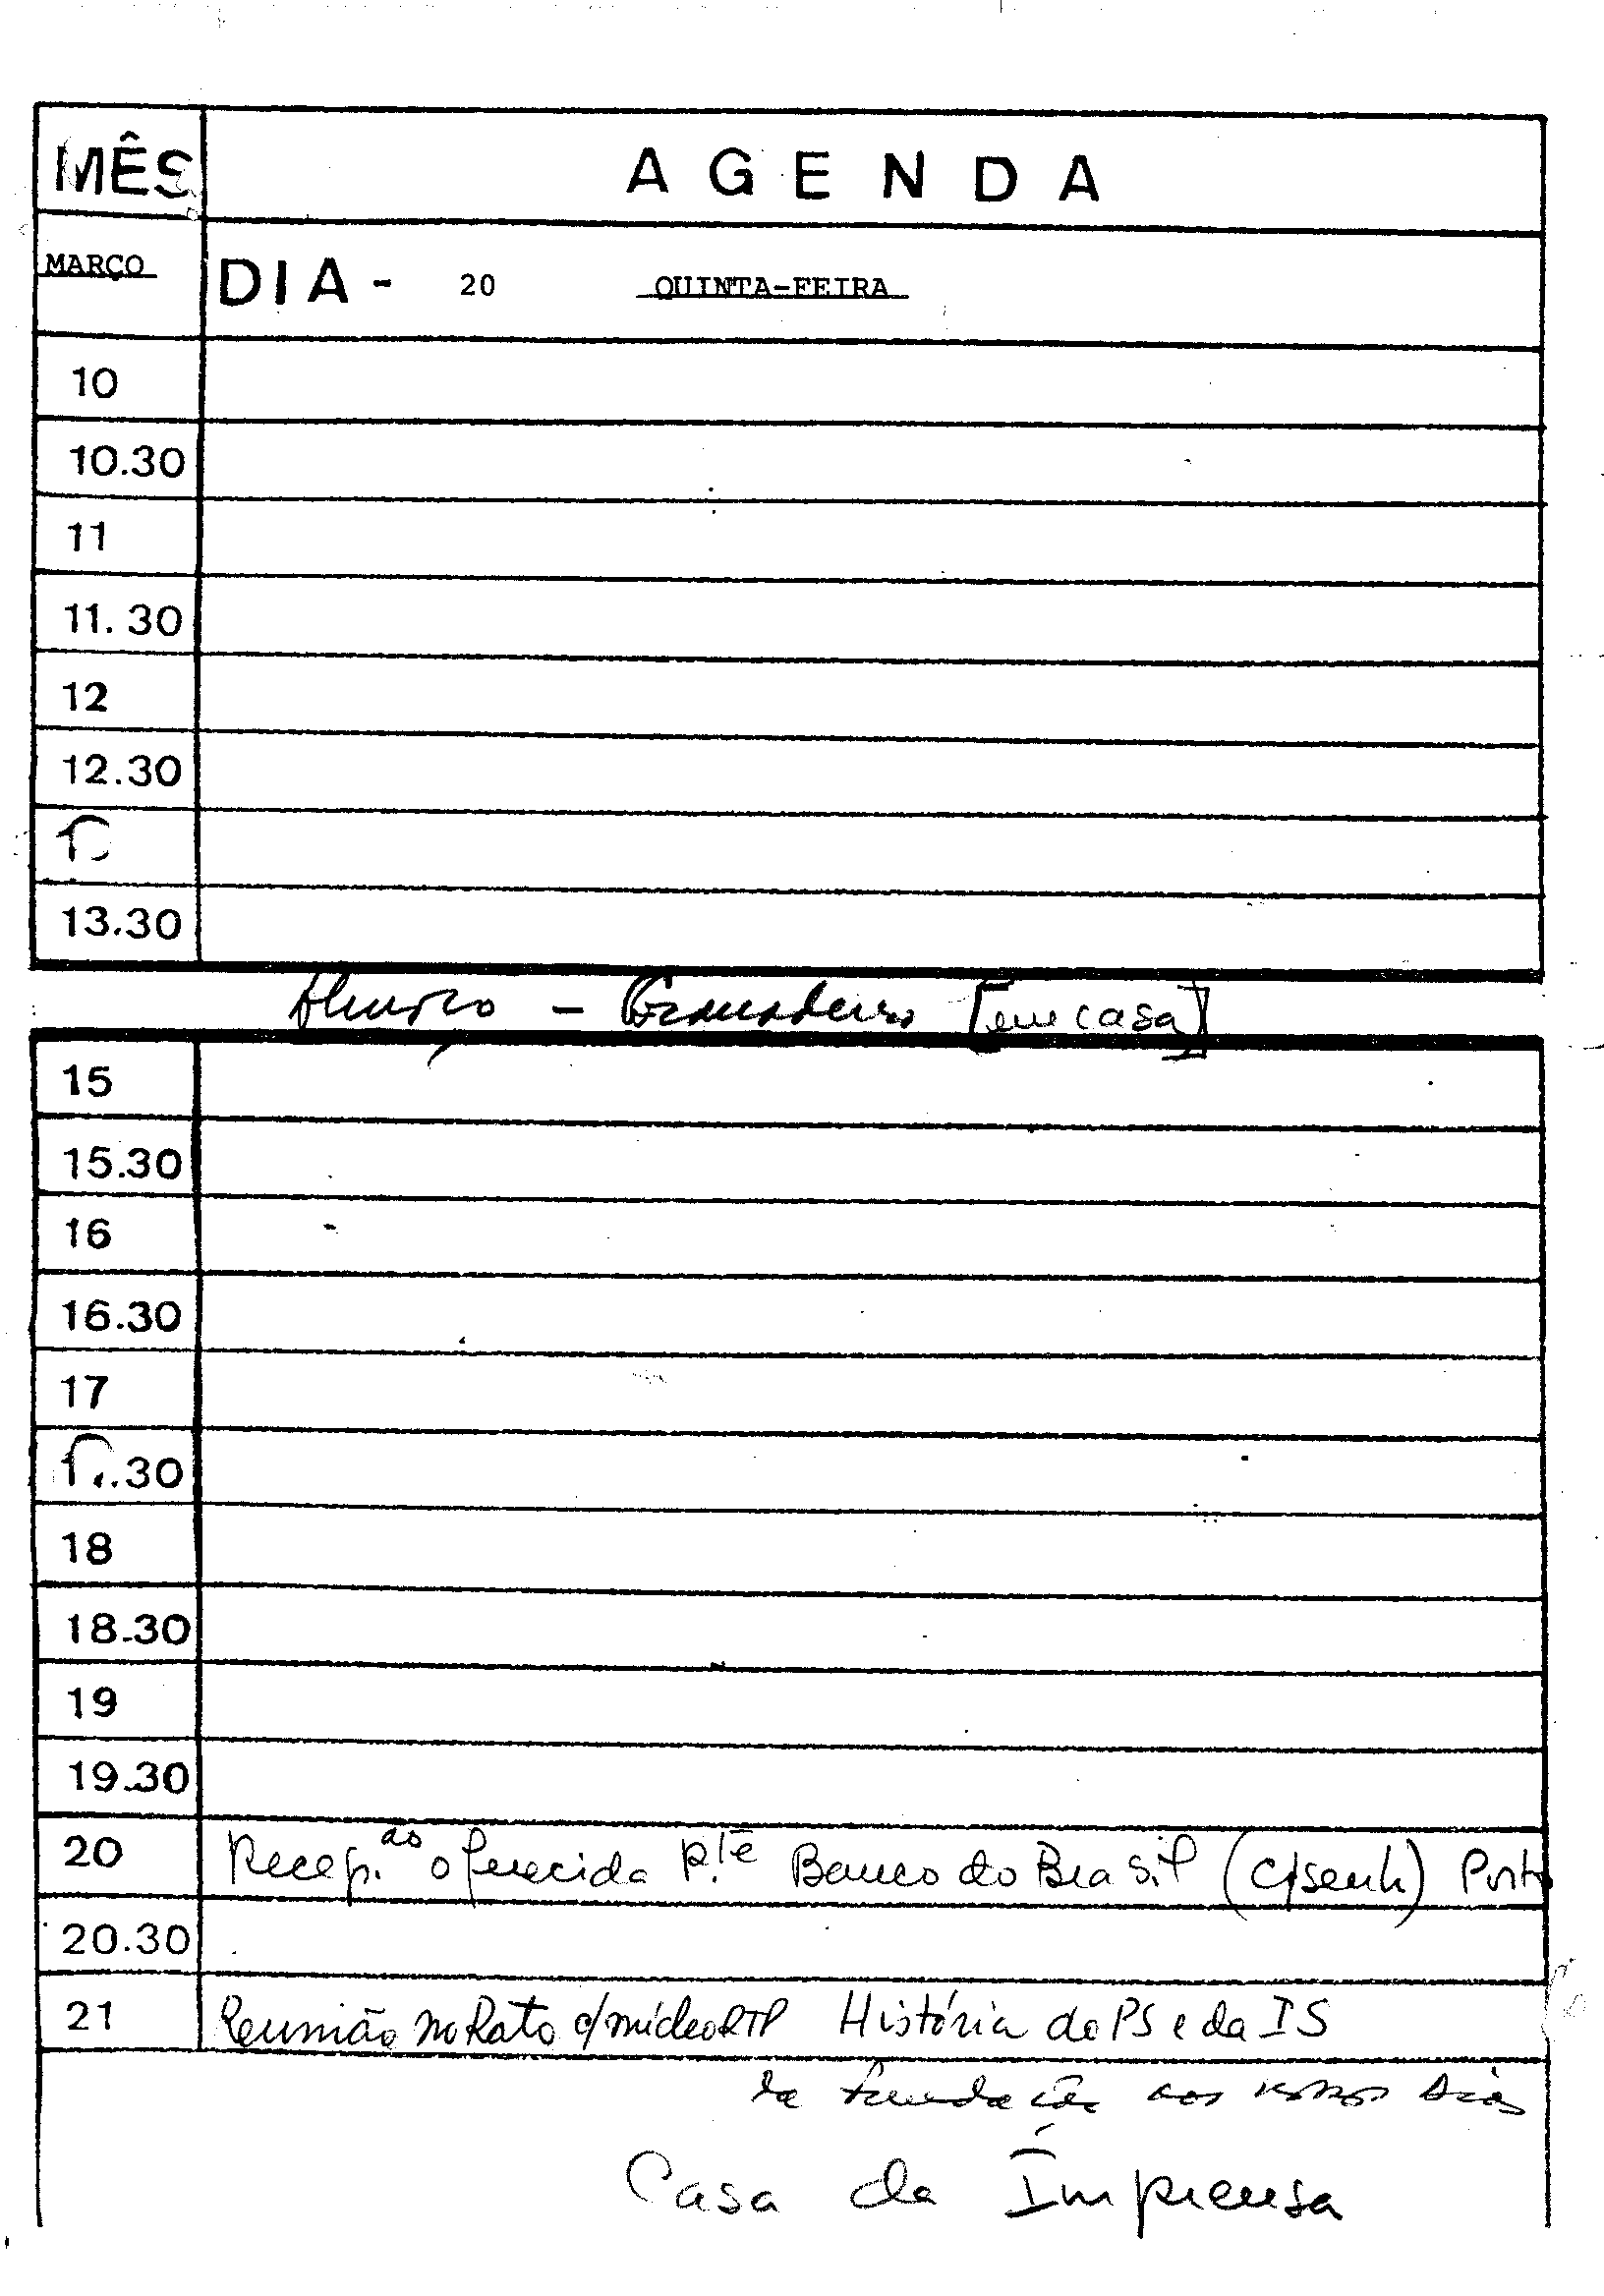 MÊS AGENDA
MARÇO DIA - 20 QUINTA-FEIRA
10
10.30
11
11.30
12
12.30
13.30
Almoço - Granadeiro [em casa]
15
15.30
16
16.30
17
.30
18
18.30
19
19.30
20 Recep.ão oferecida p.lê Banco do Brasil (c/senh) Porto
20.30
21 Reunião no Rato c/núcleo RTP História do PS e da IS
da fundação aos nossos dias
Casa da Imprensa